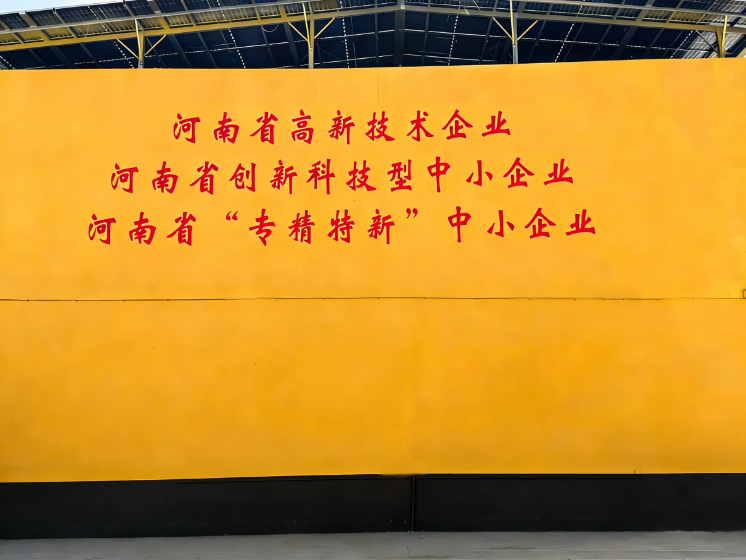 河南省高新技术企业
河南省创新科技型中小企业
河南省“专精特新”中小企业